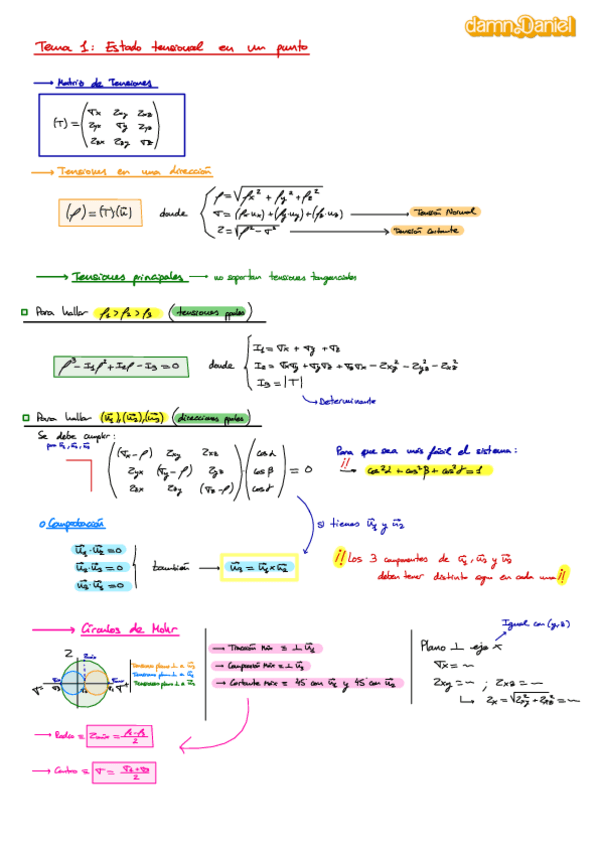 damn Daniel
Tema 1: Estado tensional en un punto
→ Matriz de Tensiones
(T) = (σx τxy τxz
τyx σy τyz
τzx τzy σz)
→ Tensiones en una dirección
(ρ) = (T)(u) donde
ρ = √(ρx² + ρy² + ρz²)
σ = (ρx·ux) + (ρy·uy) + (ρz·uz) → Tensión Normal
τ = √(ρ² − σ²) → Tensión cortante
→ Tensiones principales → no soportan tensiones tangenciales
Para hallar ρ1 > ρ2 > ρ3 (tensiones ppales)
ρ³ − I1ρ² + I2ρ − I3 = 0 donde
I1 = σx + σy + σz
I2 = σxσy + σyσz + σzσx − τxy² − τyz² − τxz²
I3 = |T|
↳ Determinante
Para hallar (u1),(u2),(u3) (direcciones ppales)
Se debe cumplir:
(σx−ρ) τxy τxz cosα
τyx (σy−ρ) τyz cosβ = 0
τzx τzy (σz−ρ) cosγ
Para que sea más fácil el sistema:
¡! → cos²α + cos²β + cos²γ = 1
Comprobación
si tienes u1 y u2
u1·u2 = 0
u2·u3 = 0
también → u3 = u1 × u2
¡¡ Los 3 componentes de u1, u2 y u3
deben tener distinto signo en cada una!!
→ Círculos de Mohr
→ Tracción Máx = ⊥ u1
→ Compresión Máx = ⊥ u3
→ Cortante Máx = 45º con u1 y 45º con u3
Igual con (y,z)
Plano ⊥ eje x
σx = ~
τxy = ~ ; τxz = ~
↳ τx = √(τxy² + τxz²) = ~
→ Radio = τmáx = (ρ1−ρ3)/2
→ Centro = σ